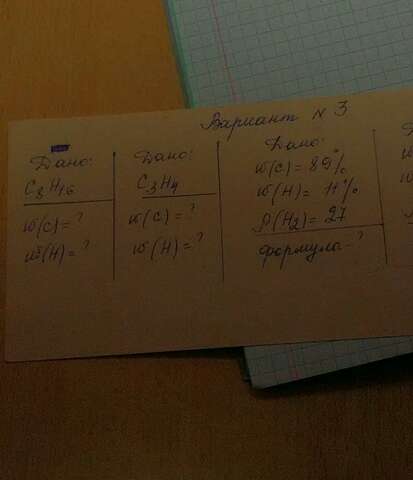 Вариант № 3
Дано:
C8H16
w(C) = ?
w(H) = ?
Дано:
C3H4
w(C) = ?
w(H) = ?
Дано:
w(C) = 89%
w(H) = 11%
D(H2) = 27
формула - ?